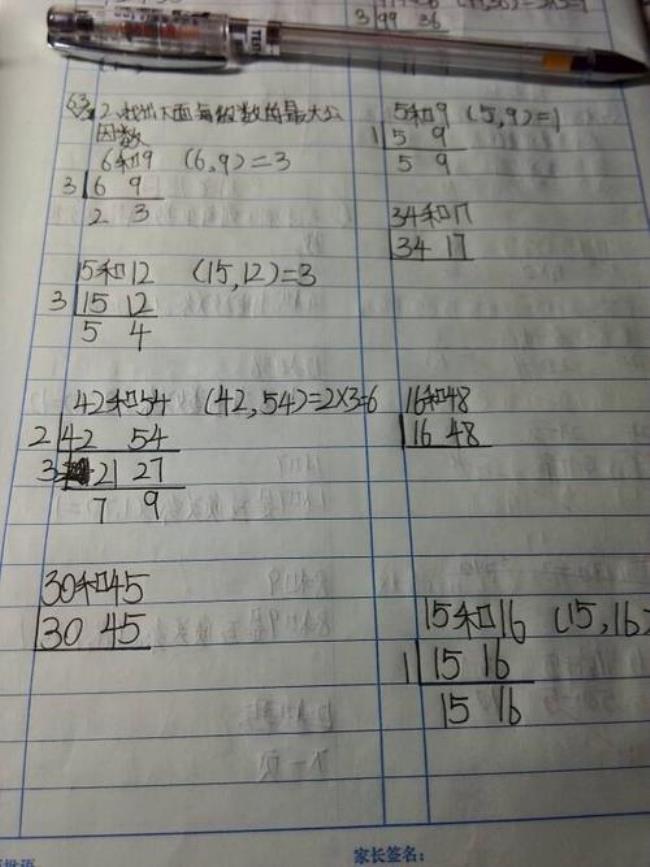 3 99 36
2、找出下面每组数的最大公
因数
6和9 (6,9)=3
3 6 9
2 3
15和12 (15,12)=3
3 15 12
5 4
42和54 (42,54)=2×3=6
2 42 54
3 21 27
7 9
30和45
30 45
5和9 (5,9)=1
1 5 9
5 9
34和17
34 17
16和48
16 48
15和16 (15,16)
1 15 16
15 16
家长签名: